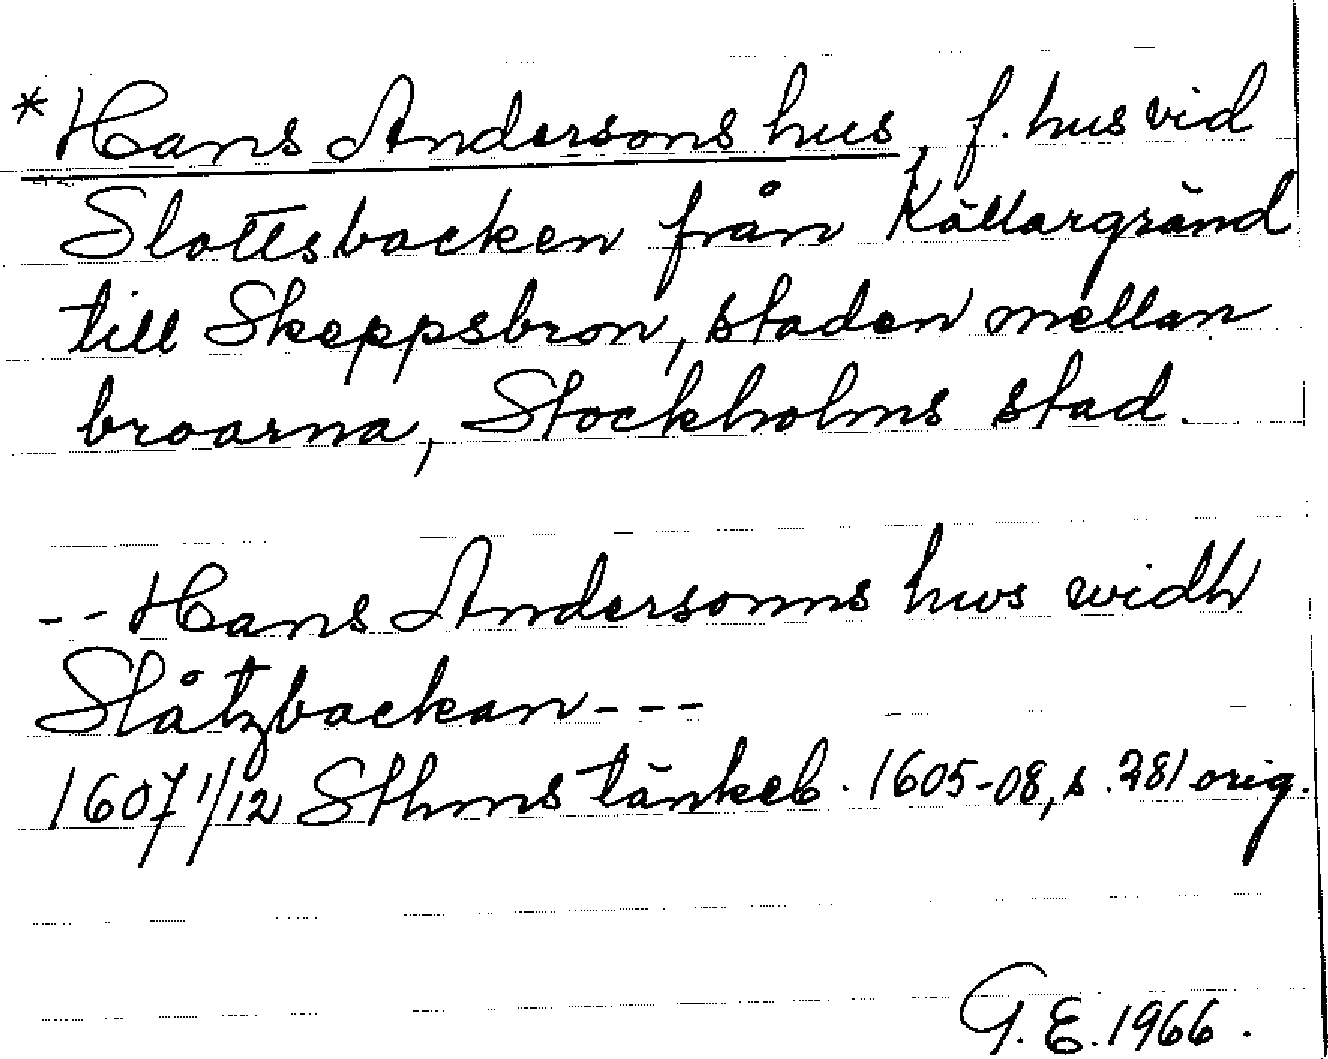 * Hans Andersons hus, f. hus vid
Slottsbacken från Källargränd
till Skeppsbron, staden mellan
broarna, Stockholms stad.
-- Hans Andersonns hws widh
Slåtzbackan ---
1607 1/12 Sthms tänkeb. 1605-08, s. 281 orig.
G. E. 1966.